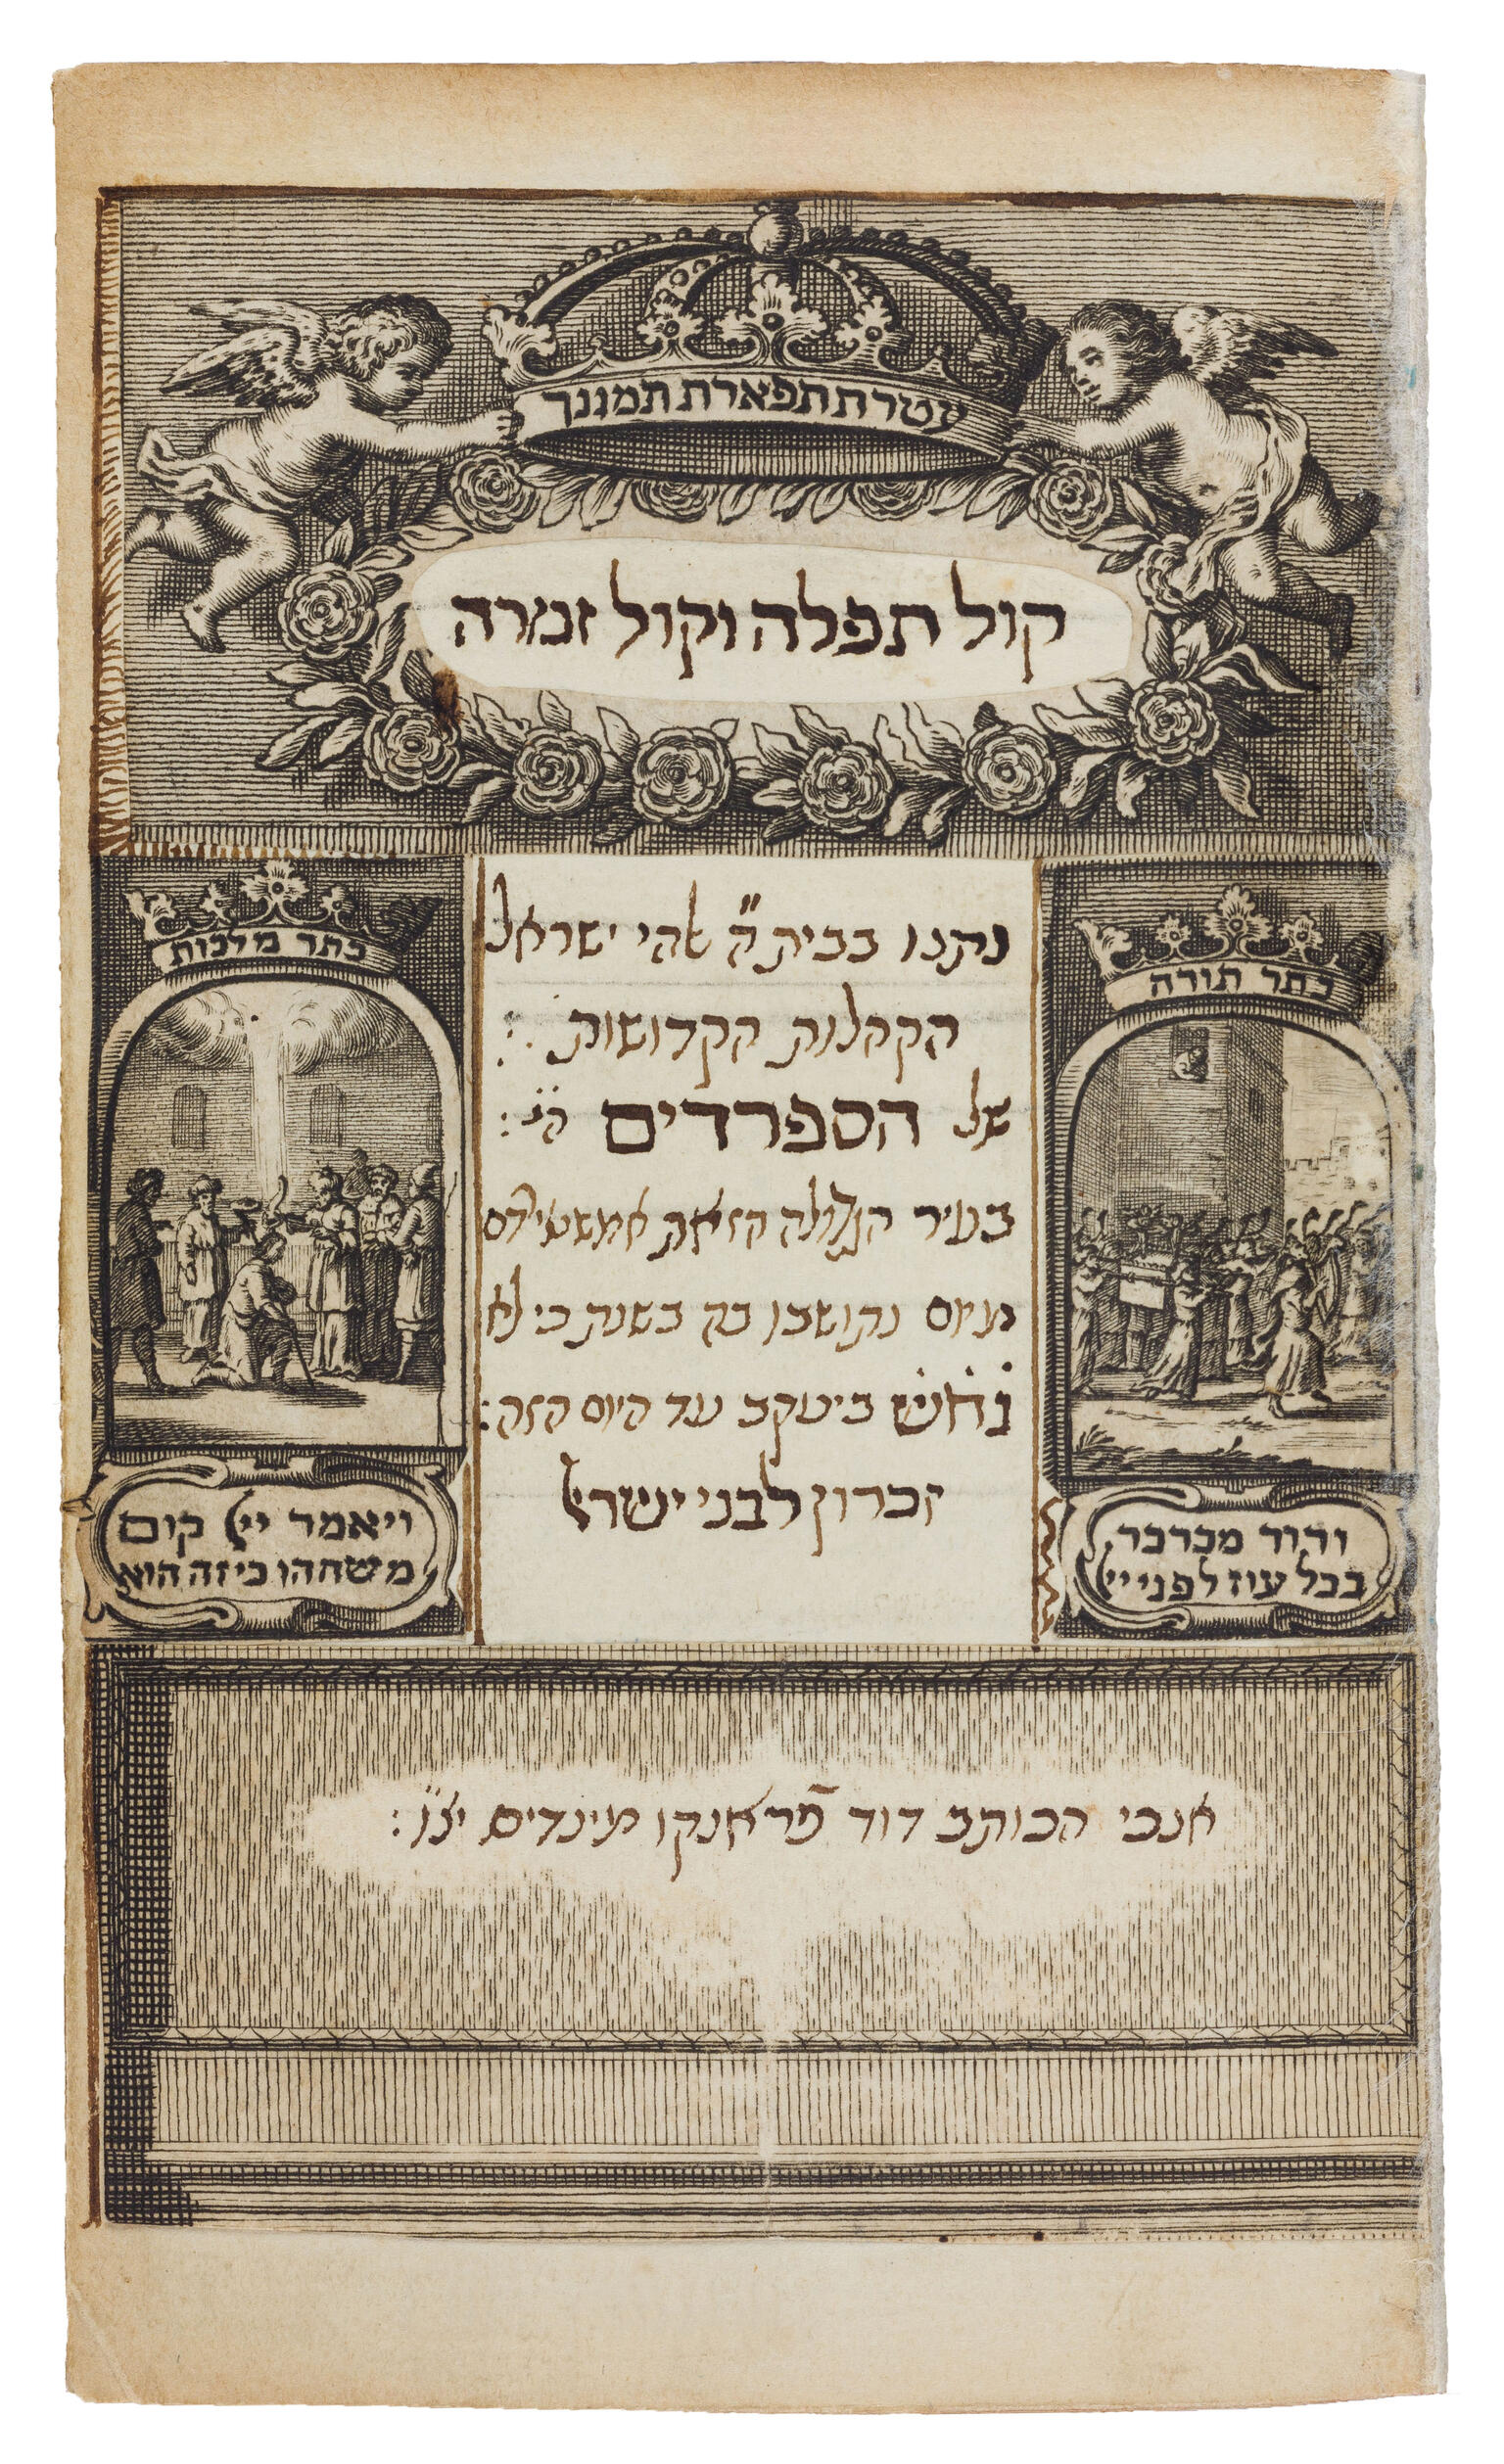 עטרת תפארת תמגנך
קול תפלה וקול זמרה
כתר תורה
כתר מלכות
נתנו בבית ה״ ﭏהי ישראל
הקהלות הקדושות :
של הספרדים ה״י :
בעיר הגדולה הזאת אמשטירדם
מיום נתישבו בה בשנת כי לא
נחש ביעקב עד היום הזה :
זכרון לבני ישרﭏ
ודוד מכרכר
בכל עוז לפני יי
ויאמר יי קום
משחהו כי זה הוא
אנכי הכותב דוד פראנקו מינדיס יצ״ו :